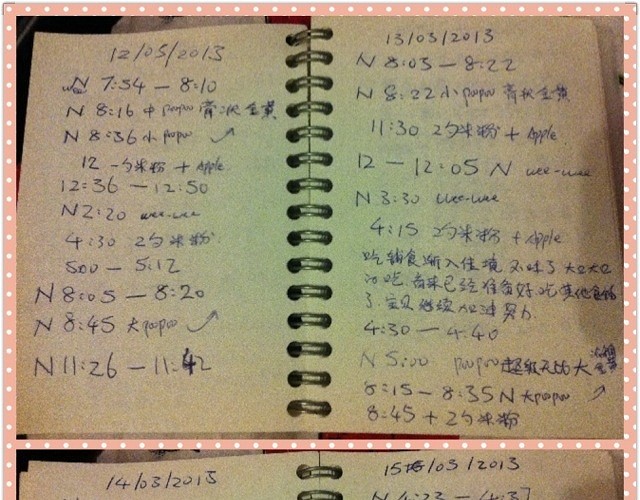 12/05/2013
N 7:54 — 8:10
wee
N 8:16 中 poopoo 膏状 金黄
N 8:36 小 popo
12 一勺米粉 + Apple
12:36 — 12:50
N 2:20 wee-wee
4:30 2勺米粉
5:00 — 5:12
N 8:05 — 8:20
N 8:45 大 poopoo
N 11:26 — 11:42
13/03/2013
N 8:05 — 8:22
N 8:22 小 poopoo 膏状 金黄
11:30 2勺米粉 + Apple
12 — 12:05 N wee-wee
N 3:30 wee-wee
4:15 2勺米粉 + Apple
吃辅食渐入佳境 大口大口
吃 看来已经准备好吃其他食物
了 宝贝继续加油努力
4:30 — 4:40
N 5:00 poopoo 超级无比大
8:15 — 8:35 N 大 poopoo
8:45 + 2勺米粉
14/03/2013
15/03/2013
N 4:23 — 4:37